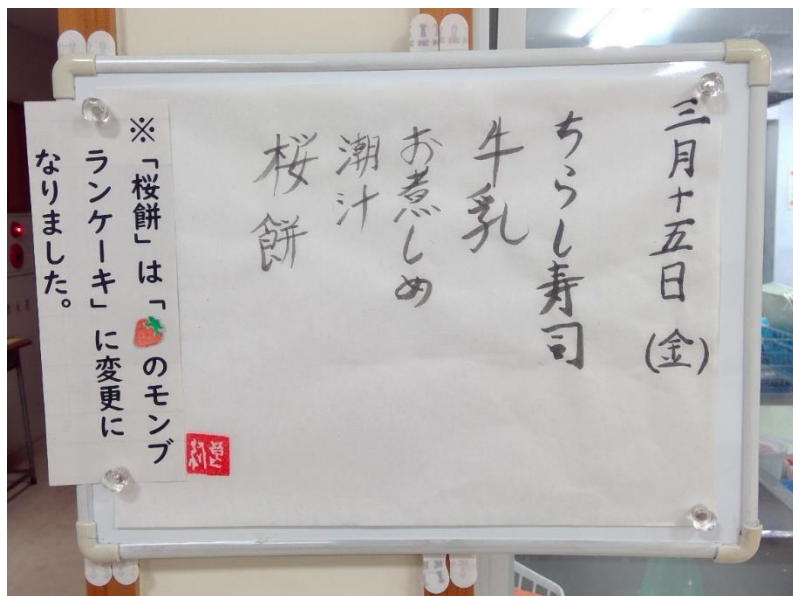 三月十五日(金)
ちらし寿司
牛乳
お煮しめ
潮汁
桜餅
※「桜餅」は「🍓のモンブ
ランケーキ」に変更に
なりました。